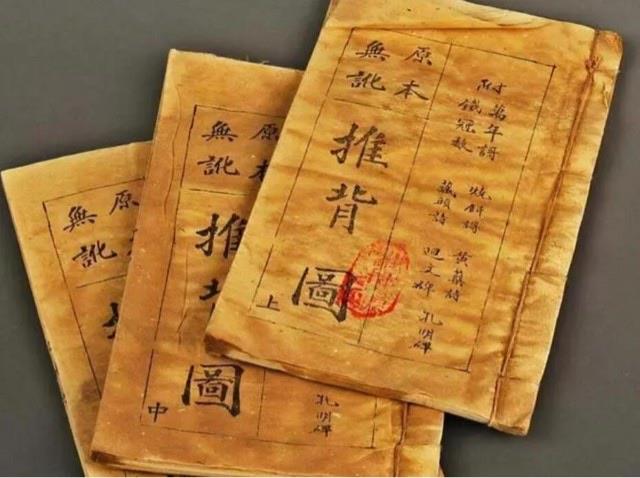 附
萬年謌
鐵冠数
燒餅謌
藏頭詩
黃蘗詩
迴文碑
孔明碑
原本
無訛
推背圖
上
原本
無訛
推背圖
中
孔明碑
原
無訛